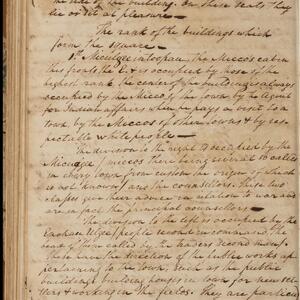 the side of the building. On these seats they
sit or lie at pleasure —
The rank of the buildings which
form the square —
1st Miculgee intoopau, the Miccos cabin
this fronts the E. & is occupied by those of the
highest rank the center of the building is always
occupied by the Micco of the town by the agent
for Indian affairs when he pays a visit to a
town by the Miccos of other towns & by res-
pectable white people —
The division to the right is occupied by the
Micuggee / miccos there being several so called
in every town from custom the origin of which
is not known / and the counsellors. these two
classes give their advice in relation to war and
are in fact the principal councellors —
The division to the left is occupied by the
Enehau Ulgee / people second in command, the
head of whom called by the traders second man /.
These have the direction of the public works ap-
pertaining to the town, such as the public
buildings, building houses in town for new set
tlers & working in the fields. They are particul